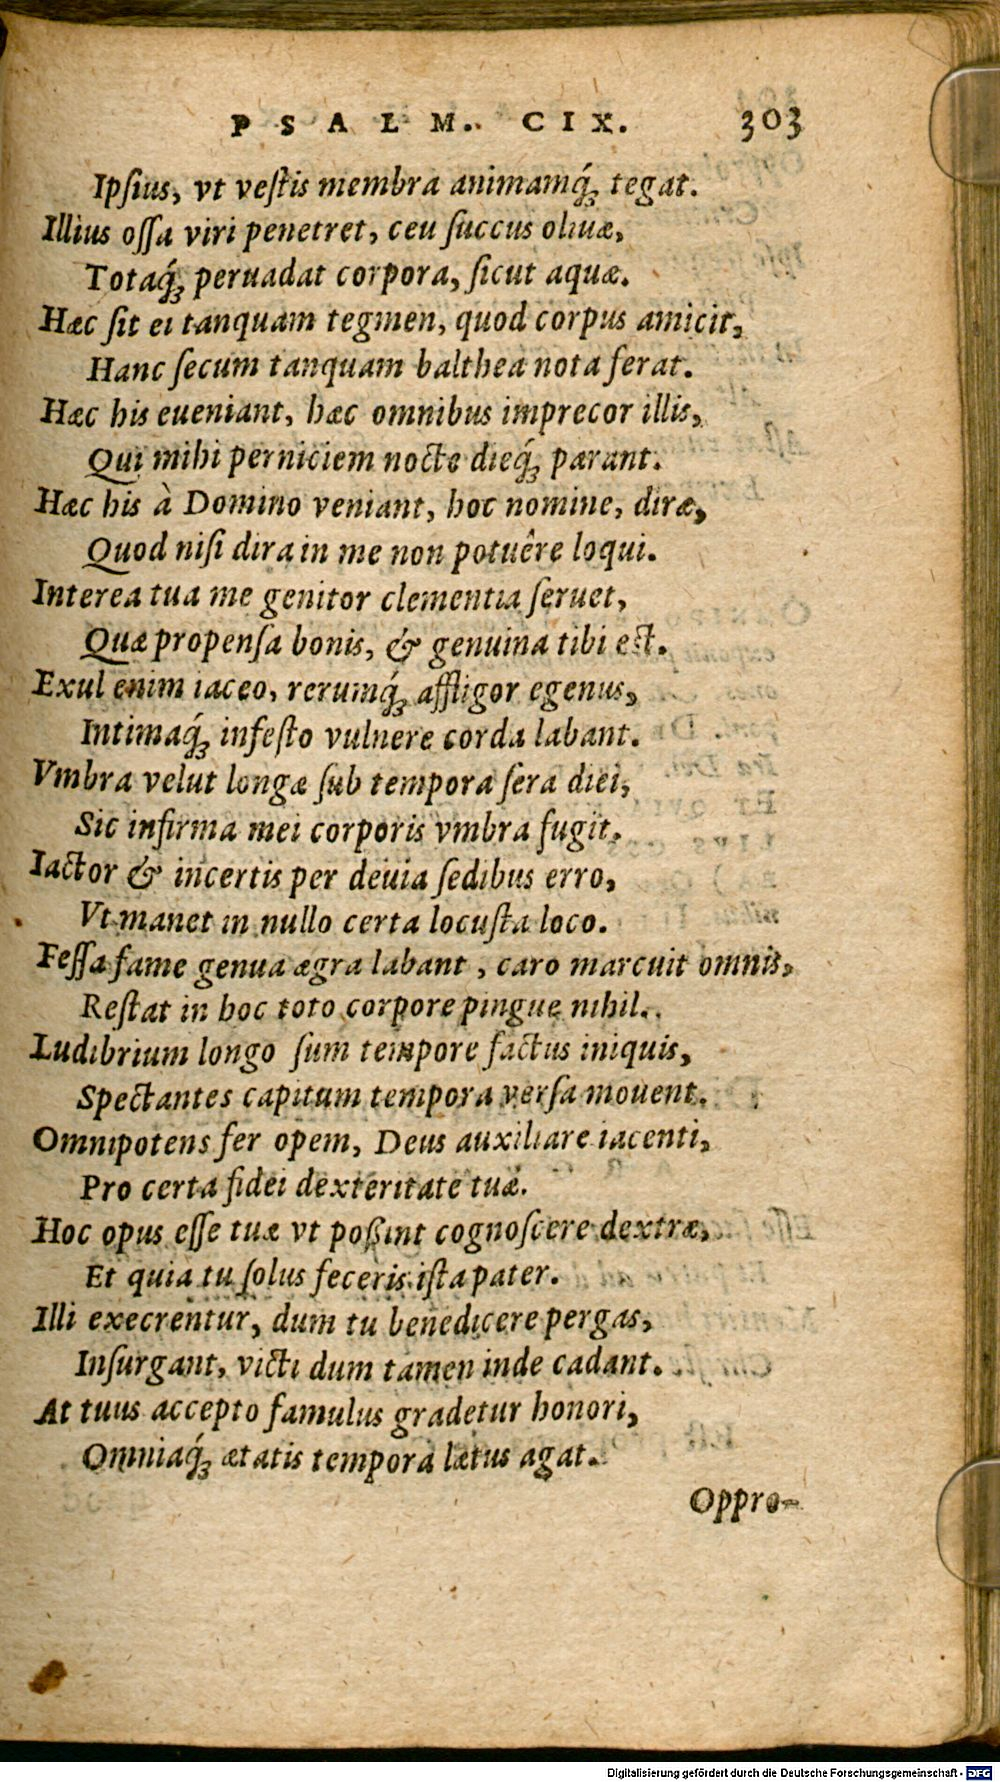 PSALM. CIX. 303
Ipſius, vt veſtis membra animamq́; tegat.
Illius oſſa viri penetret, ceu ſuccus oliuæ,
Totaq́; peruadat corpora, ſicut aquæ.
Hæc ſit ei tanquam tegmen, quod corpus amicit,
Hanc ſecum tanquam balthea nota ferat.
Hæc his eueniant, hæc omnibus imprecor illis,
Qui mihi perniciem nocte dieq́; parant.
Hæc his à Domino veniant, hoc nomine, diræ,
Quod niſi dira in me non potuêre loqui.
Interea tua me genitor clementia ſeruet,
Quæ propenſa bonis, & genuina tibi eſt.
Exul enim iaceo, rerumq́; affligor egenus,
Intimaq́; infeſto vulnere corda labant.
Vmbra velut longæ ſub tempora ſera diei,
Sic infirma mei corporis vmbra fugit.
Iactor & incertis per deuia ſedibus erro,
Vt manet in nullo certa locuſta loco.
Feſſa fame genua ægra labant, caro marcuit omnis,
Reſtat in hoc toto corpore pingue nihil.
Ludibrium longo ſum tempore factus iniquis,
Spectantes capitum tempora verſa mouent.
Omnipotens fer opem, Deus auxiliare iacenti,
Pro certa fidei dexteritate tuæ.
Hoc opus eſſe tuæ vt poßint cognoſcere dextræ,
Et quia tu ſolus feceris iſta pater.
Illi execrentur, dum tu benedicere pergas,
Inſurgant, victi dum tamen inde cadant.
At tuus accepto famulus gradetur honori,
Omniaq́; ætatis tempora lætus agat.
Oppro-
Digitalisierung gefördert durch die Deutsche Forschungsgemeinschaft - DFG